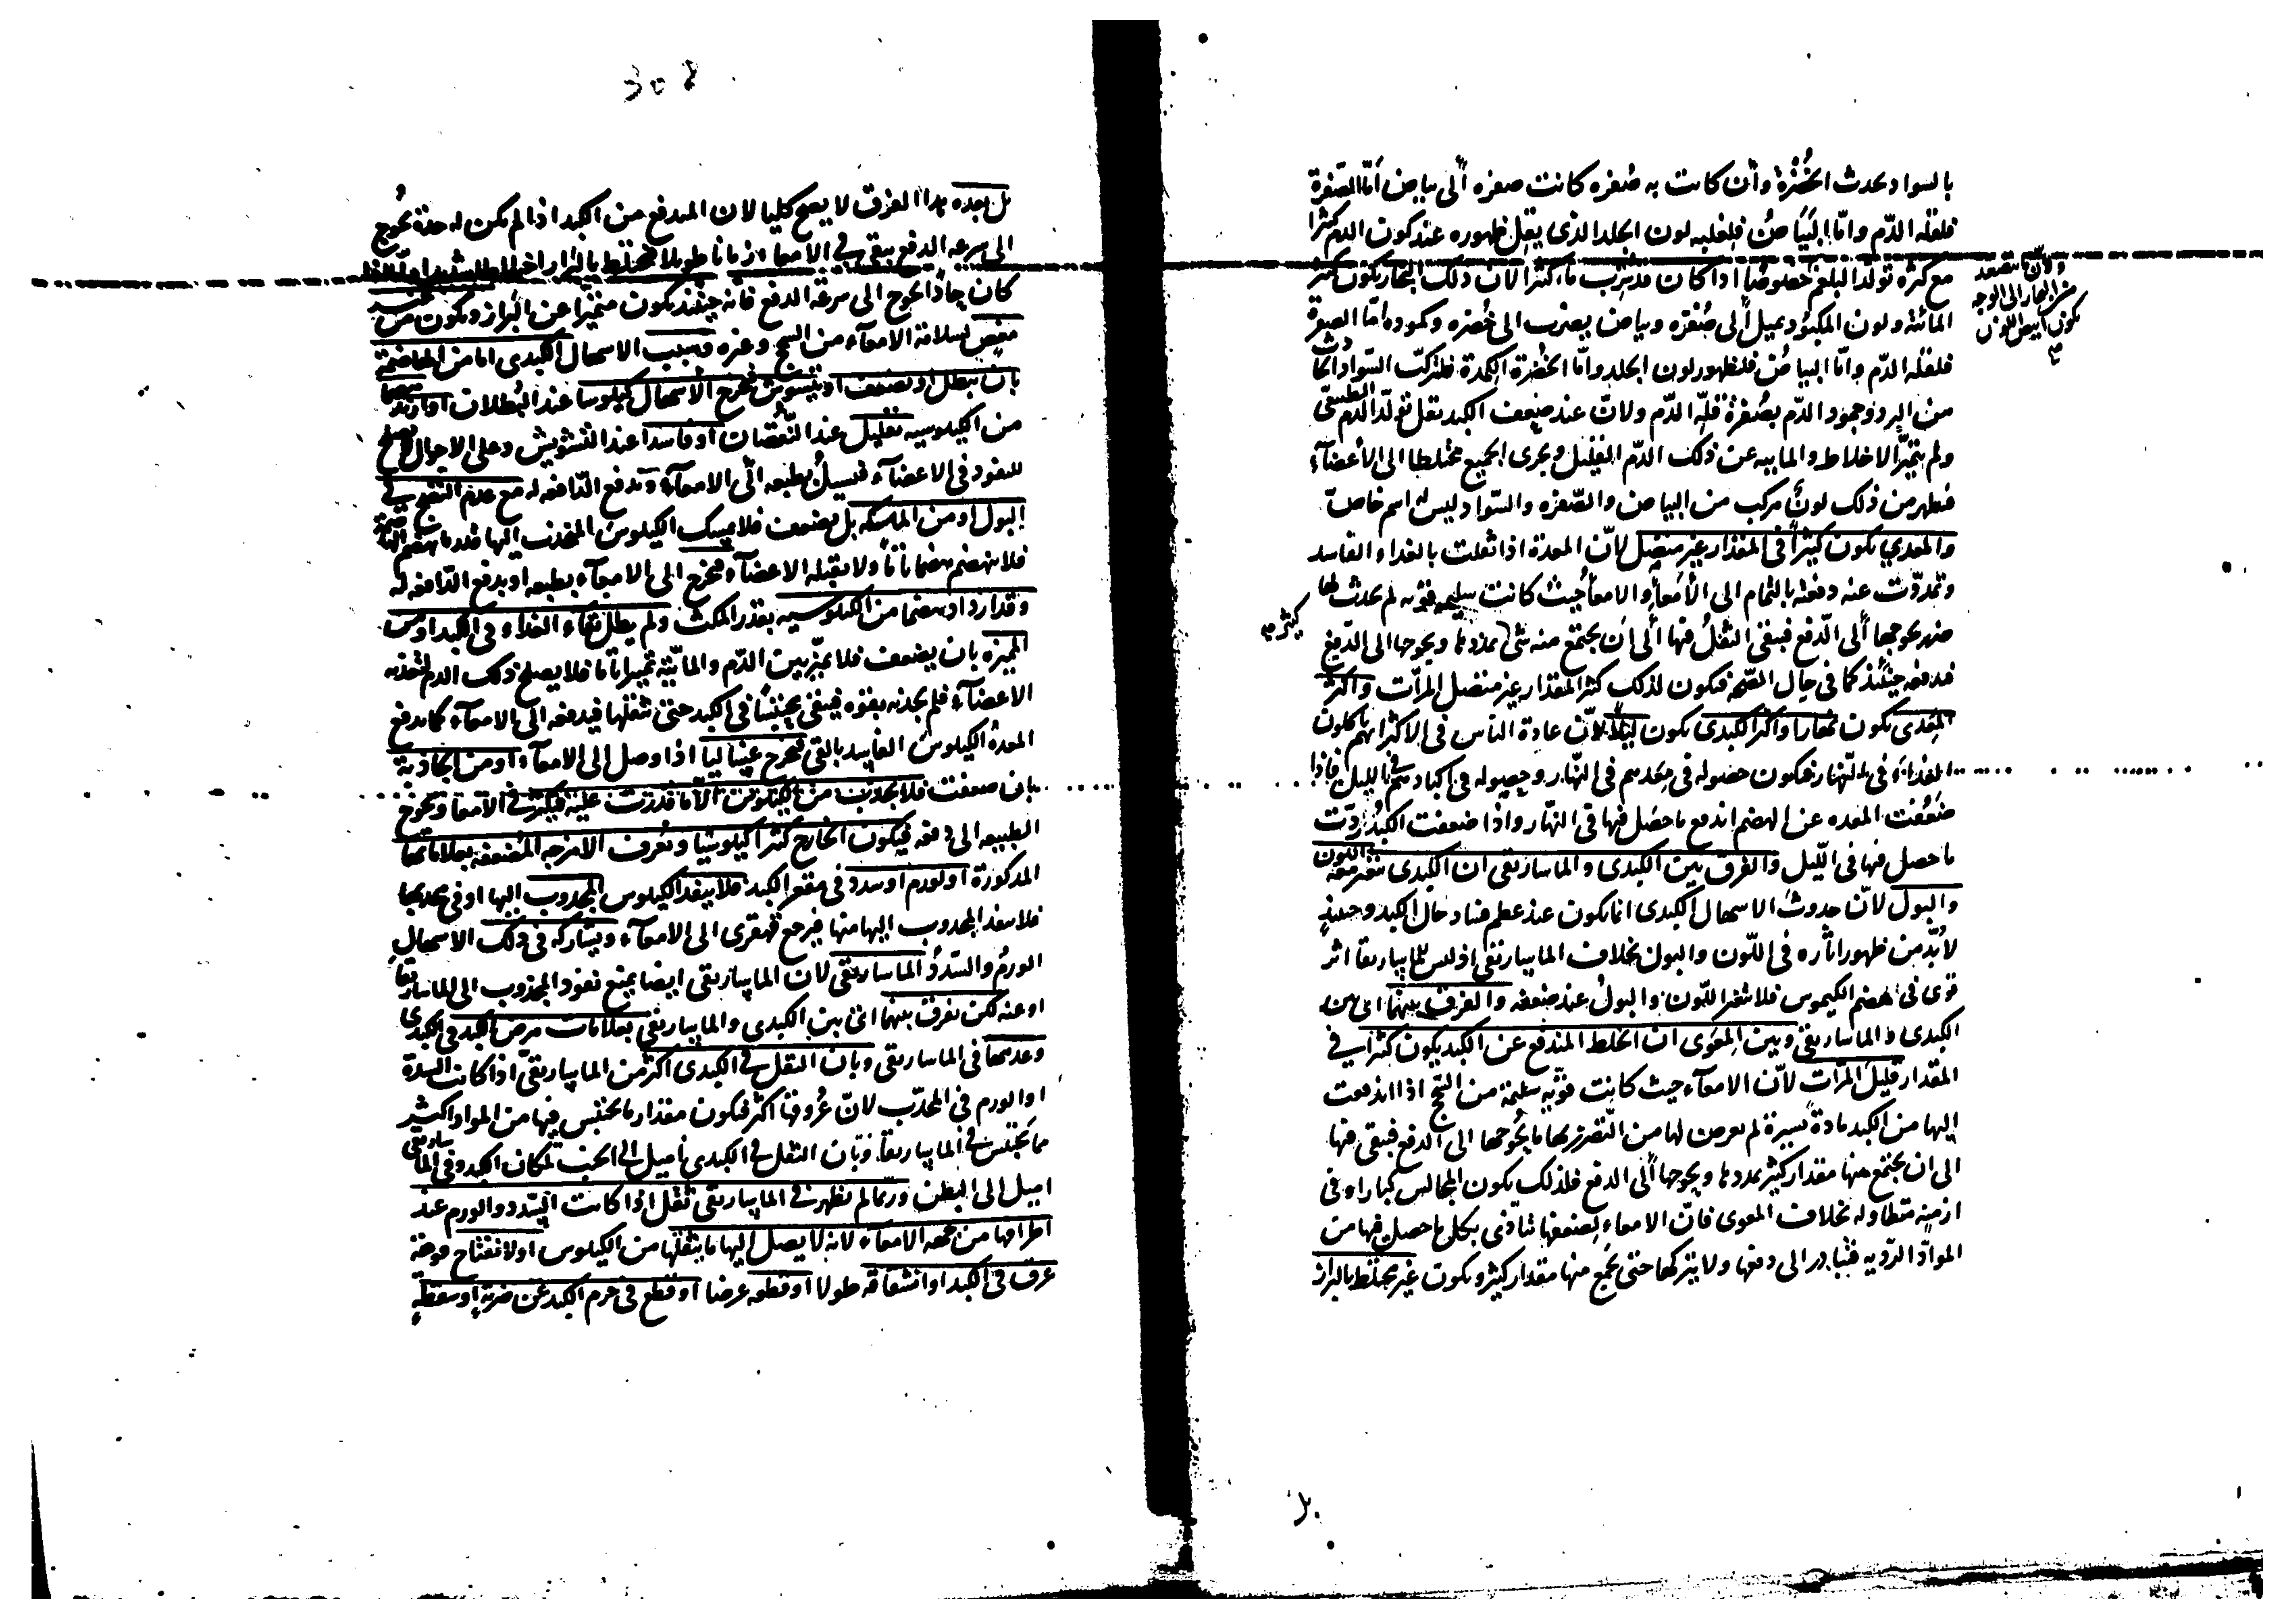 بالسواد يحدث الخضرة وان كانت به صفرة كانت صفرة الى بياض اما الصفرة
فلقلة الدم واما البياض فلغلبة لون الجلد الذي يقل ظهوره عند كون الدم كثيرا
مع كثرة تولد البلغم خصوصا اذا كان قد شرب ماء كثيرا لان ذلك البخار يكون كثير
المائية ولون المكبود يميل الى صفرة وبياض يضرب الى خضرة وكمودة اما الصفرة
فلقلة الدم واما البياض فلظهور لون الجلد واما الخضرة الكمدة فلتركب السواد الحادث
من البرد وجمود الدم بصفرة قلة الدم ولان عند ضعف الكبد تقل تولد الدم الطبيعى
ولم يتميز الاخلاط والماييه عن ذلك الدم القليل ويجرى الجميع مختلطا الى الاعضاء
فيظهر من ذلك لون مركب من البياض والصفره والسواد ليس له اسم خاص
والمعدي يكون كثيرا فى المقدار غير متصل لان المعدة اذا ثقلت بالغداء الفاسد
وتمددت عنه دفعته بالتمام الى الامعاء والامعا حيث كانت سليمه قويه لم يحدث لها
ضرر يحوجها الى الدفع فيبقى الثقل فيها الى ان يجتمع منه شئ كثير يمددها ويحوجها الى الدفع
فدفعه حينئذ كما فى حال الصحه فيكون لذلك كثير المقدار غير متصل المرات واكثر
المعدى يكون نهارا واكثر الكبدى يكون ليلا لان عادة الناس فى الاكثر انهم ياكلون
الغذاء فى النهار فيكون حصوله فى معدهم فى النهار وحصوله فى اكبادهم فى الليل فاذا
ضعفت المعده عن الهضم اندفع ما حصل فيها فى النهار واذا ضعفت الكبد ردت
ما حصل فيها فى الليل والفرق بين الكبدى والماساريقى ان الكبدى يتغير معه اللون
والبول لان حدوث الاسهال الكبدى انما يكون عند عظم فساد حال الكبد وحينئذ
لا بد من ظهور اثاره فى اللون والبول بخلاف الماساريقى اذ ليس للماساريقا اثر
قوى فى هضم الكيموس فلا يتغير اللون والبول عند ضعفه والفرق بينهما اى بين
الكبدى والماساريقى وبين المعوى ان الخلط المندفع عن الكبد يكون كثيرا فى
المقدار قليل المرات لان الامعاء حيث كانت قويه سليمة من السحج اذا اندفعت
اليها من الكبد مادة يسيرة لم يعرض لها من التضرر بها ما يحوجها الى الدفع فيبقى فيها
الى ان يجتمع منها مقدار كثير يمددها ويحوجها الى الدفع فلذلك يكون المجالس كبارا وفى
ازمنه متطاوله بخلاف المعوى فان الامعاء لضعفها تتاذى بكل ما حصل فيها من
المواد الرديه فتبادر الى دفعها ولا يتركها حتى يجمع منها مقدار كثير ويكون غير مختلط بالبراز
ولان المتصعد
من البخار الى الوجه
يكون ابيض اللون
كثير
بل
308
بل بعده هذا الفرق لا يصح كليا لان المندفع من الكبد اذا لم يكن له حدة يحوج
الى سرعه الدفع يبقى فى الامعاء زمانا طويلا
كان حادا يحوج الى سرعة الدفع فانه حينئذ يكون متميزا عن البراز ويكون من غير
مغص لسلامة الامعاء من السحج وغيره وسبب الاسهال الكبدى اما من الهاضمة
بان يبطل او يضعف او يتشوش فيخرج الاسهال كيلوسا عند البطلان او ازيد هضما
من الكيلوسيه بقليل عند النقصان او فاسدا عند التشويش وعلى الاحوال لا يصلح
للنفوذ فى الاعضاء فيسيل بطبعه الى الامعاء وتدفع الدافعه له مع عدم النضج فى
البول او من الماسكه بل يضعف فلا يمسك الكيلوس المنجذب اليها
فلا ينهضم هضما تاما ولا يقبله الاعضاء فيخرج الى الامعاء بطبعه او بدفع الدافعه له
وقد ازداد هضما من الكيلوسيه بقدر المكث ولم يطل بقاء الغذاء فى الكبد او من
المميزه بان يضعف فلا يميز بين الدم والمائية تمييزا تاما فلا يصلح ذلك الدم لتغذيه
الاعضاء فلم يجذبه بقوه فيبقى محتبسا فى الكبد حتى يثقلها فيدفعه الى الامعاء كما يدفع
المعدة الكيلوس الفاسد بالقئ فيخرج غساليا اذا وصل الى الامعاء او من الجاذبة
بان ضعفت فلا يجذب من الكيلوس الا ما قدرت عليه فيكثر فى الامعا ويحوج
الطبيعه الى دفعه فيكون الخارج كثيرا كيلوسيا وتعرف الامزجه المضعفه بعلاماتها
المذكورة او لورم او سدد فى مقعر الكبد فلا ينفذ الكيلوس المجذوب اليها او فى محدبها
فلا ينفذ المجذوب اليها منها فيرجع قهقرى الى الامعاء ويشاركه فى ذلك الاسهال
الورم والسدد الماساريقى لان الماساريقى ايضا يمنع نفوذ المجذوب الى الماساريقا
او عنه لكن يفرق بينهما اى بين الكبدى والماساريقى بعلامات مرض الكبد فى الكبدى
وعدمها فى الماساريقى وبان الثقل فى الكبدى اكثر من الماساريقى اذا كانت السدة
او الورم فى المحدب لان عروقها اكثر فيكون مقدار ما يحتبس فيها من المواد اكثر
مما يحتبس فى الماساريقا وبان الثقل فى الكبدى اميل الى الجنب لمكان الكبد وفى الماساريقى
اميل الى البطن وربما لم يظهر فى الماساريقى ثقل اذا كانت السدد والورم عند
اطرافها من جهه الامعاء لانه لا يصل اليها ما يثقلها من الكيلوس او لانفتاح فوهة
عرق فى الكبد او انشقاقه طولا او قطعه عرضا او قطع فى جرم الكبد عن ضربة او سقطة